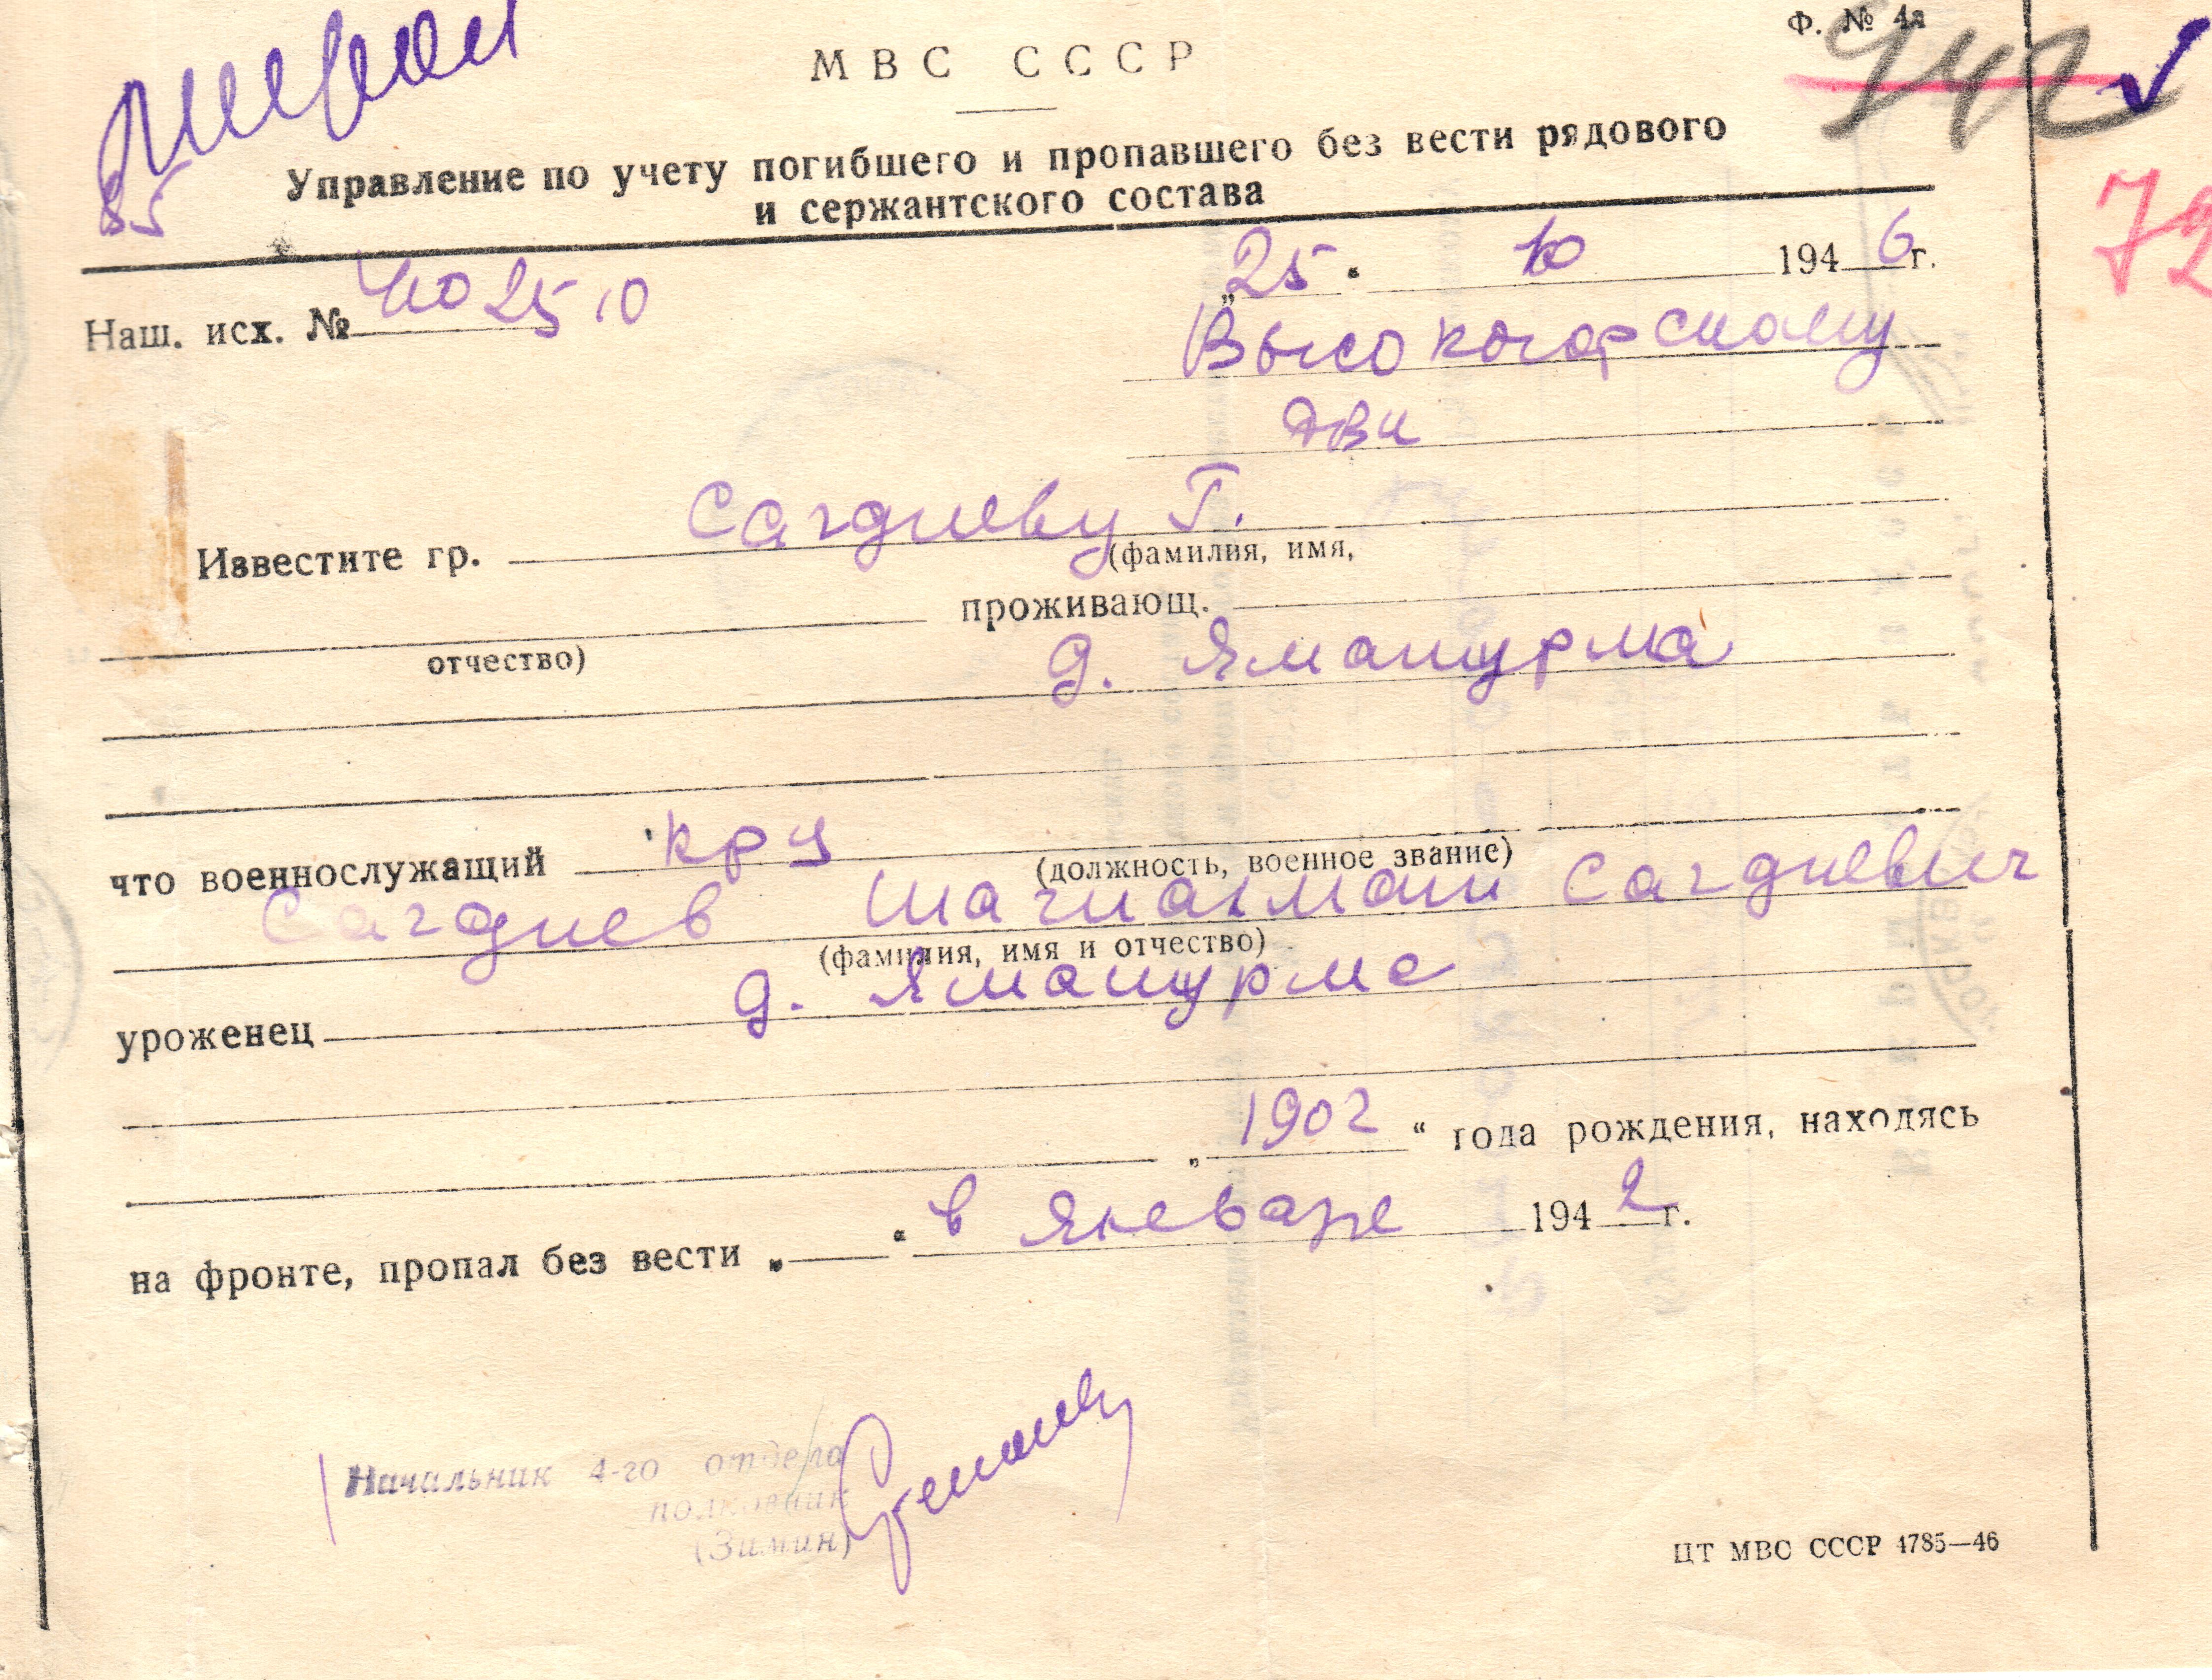 Ф. № 4а
742
МВС СССР
72
85
Управление по учету погибшего и пропавшего без вести рядового
и сержантского состава
Наш. исх. №
„25“ 10 1946 г.
Высокогорскому
РВК
Известите гр. Сагдиеву Г.
(фамилия, имя,
проживающ.
отчество)
д. Ямашурма
что военнослужащий кр-ц
(должность, военное звание)
Сагдиев Сагдиевич
(фамилия, имя и отчество)
уроженец д. Ямашурма
„1902“ года рождения, находясь
на фронте, пропал без вести „ “ в январе 1942 г.
Начальник 4-го отдела
полковник
(Зимин)
ЦТ МВС СССР 1785—46